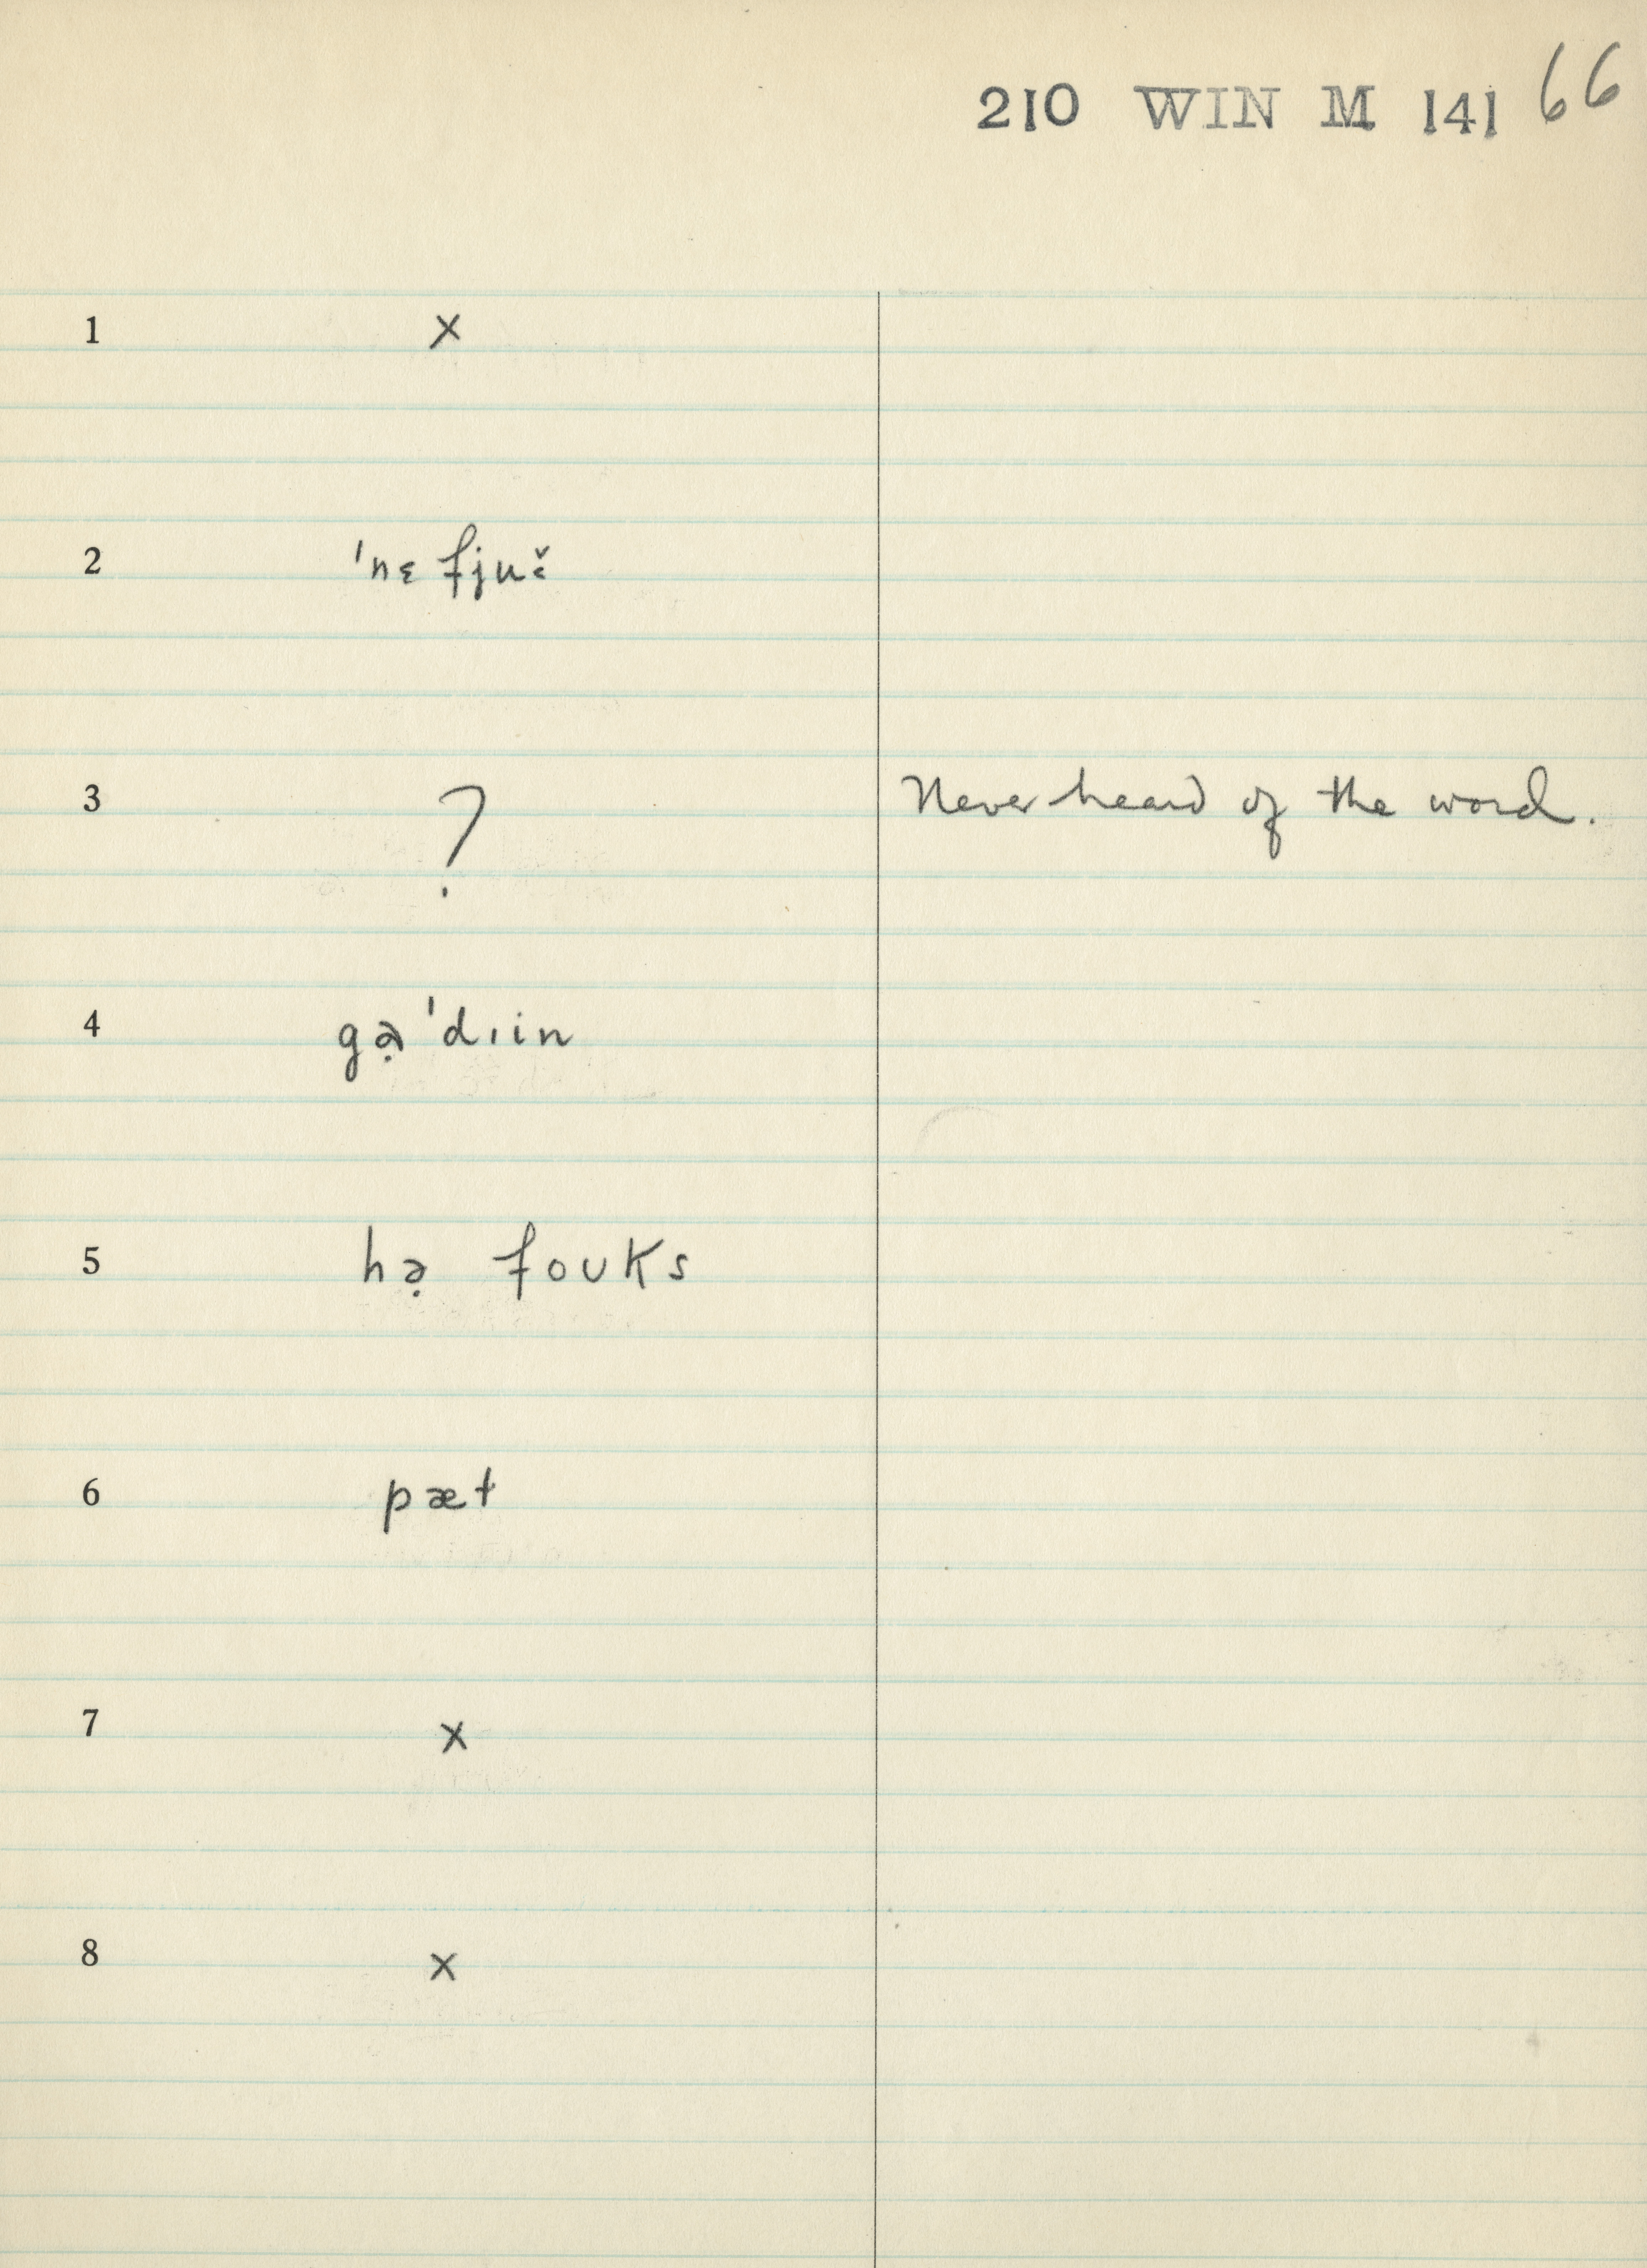 210 WIN M 141 66
1 x
2 'nɛfjuˇ˂
3 ? Never heard of the word.
4 gə̣'dɪin
5 hə̣ foʊks
6 pæt
7 x
8 x